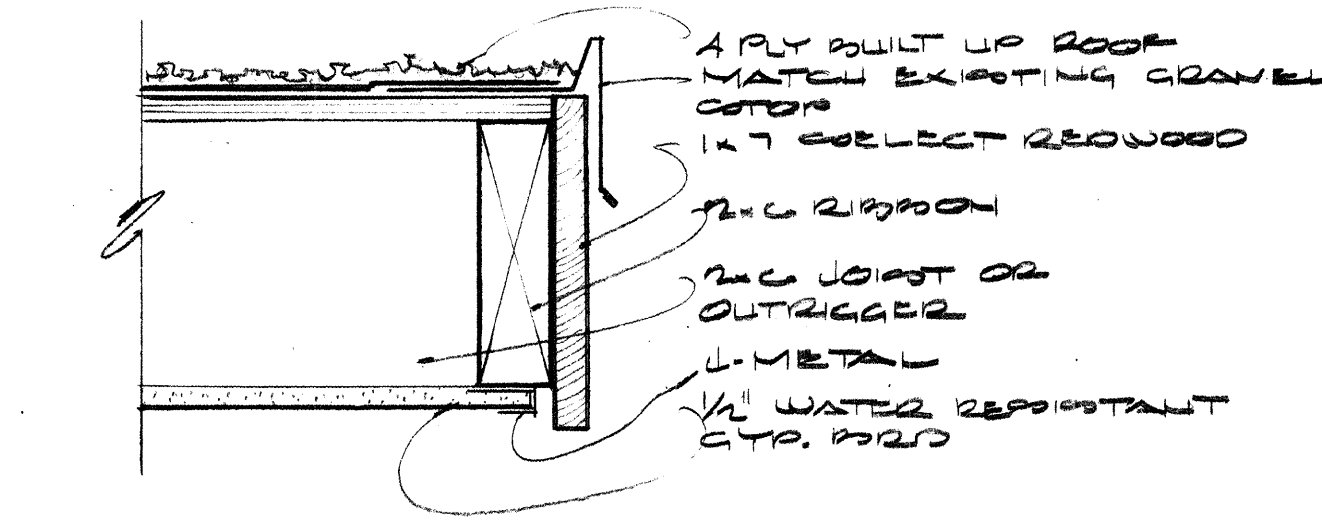 4 PLY BUILT UP ROOF
MATCH EXISTING GRAVEL
STOP
1x SELECT REDWOOD
2x6 RIBBON
2x6 JOIST OR
OUTRIGGER
METAL
1/2" WATER RESISTANT
GYP. BRD